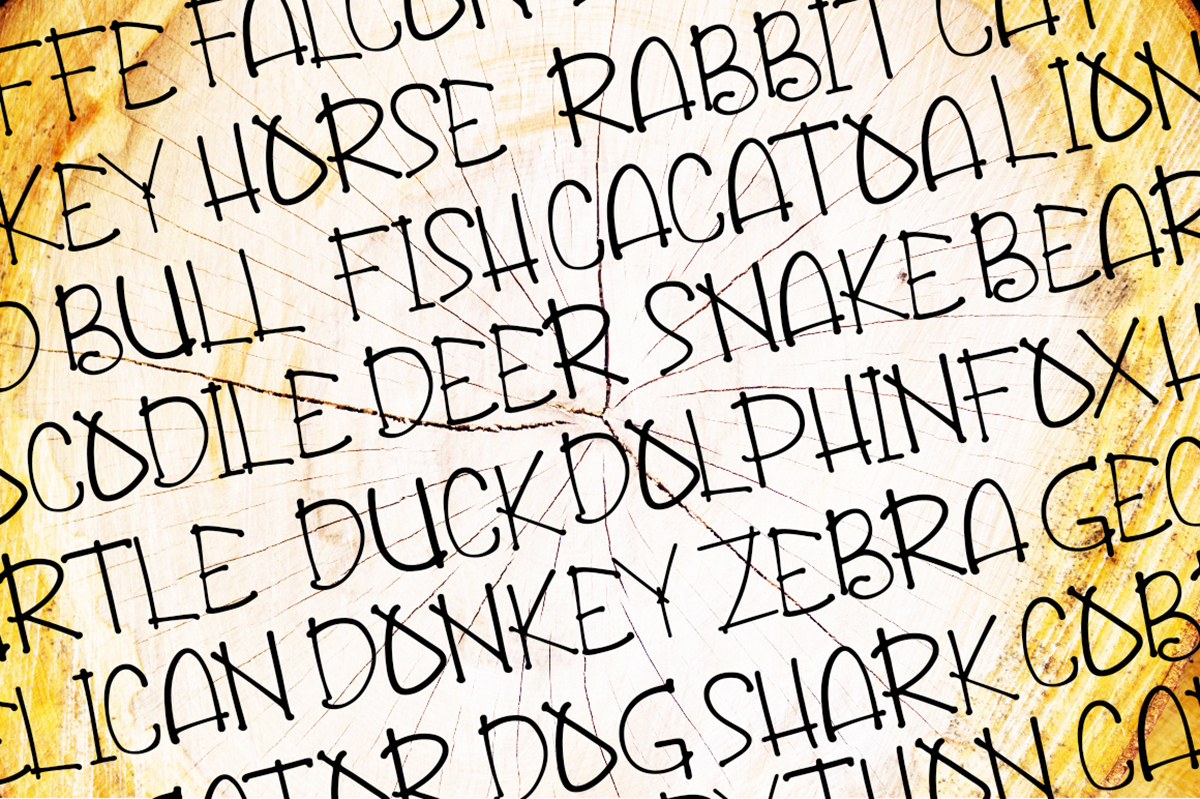 FFE FALCON
KEY HORSE RABBIT CAT
BULL FISH CACATOA LION
CODILE DEER SNAKE BEAR
RTLE DUCK DOLPHIN FOX
LICAN DONKEY ZEBRA GEC
ATOR DOG SHARK COB
YTHON CA